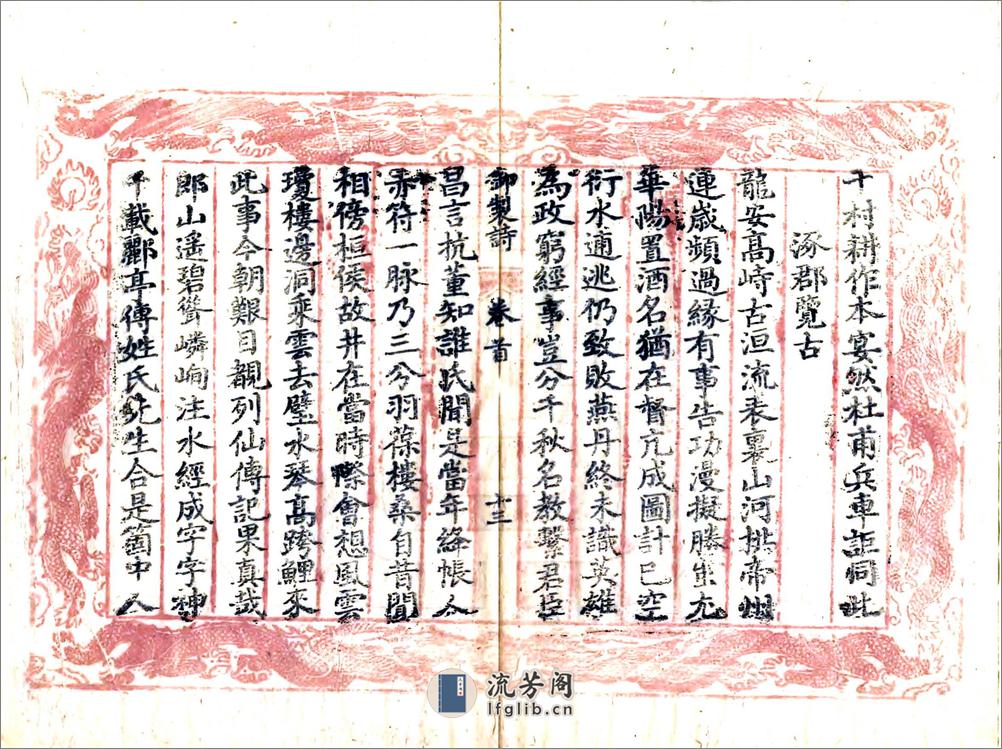 千村耕作本宴然杜甫兵車詎同此
涿郡覽古
龍安高峙古洹流表裏山河拱帝州
連歲頻過緣有事告功漫擬勝出尤
華陽置酒名猶在督亢成圖計已空
衍水逋逃仍致敗燕丹終未識英雄
為政窮經事豈分千秋名教繫君臣
御製詩 卷首 十三
昌言抗董知誰氏聞是當年絳帳人
赤符一脉乃三分羽葆樓桑自昔聞
相傍桓侯故井在當時際會想風雲
瓊樓邊洞乘雲去壁水琴高跨鯉來
此事今朝艱目覩列仙傳記果真哉
郎山遙碧聳嶙峋注水經成字字神
千載酈亭傳姓氏先生合是箇中人
流芳阁
lfglib.cn